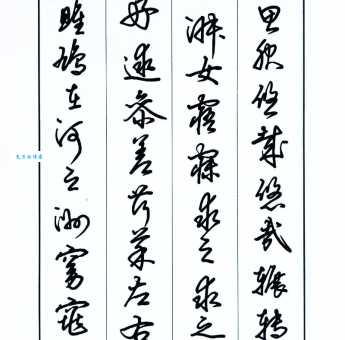 雎鸠在河之洲窈窕
好逑参差荇菜左右
淑女寤寐求之求之
思服悠哉悠哉辗转